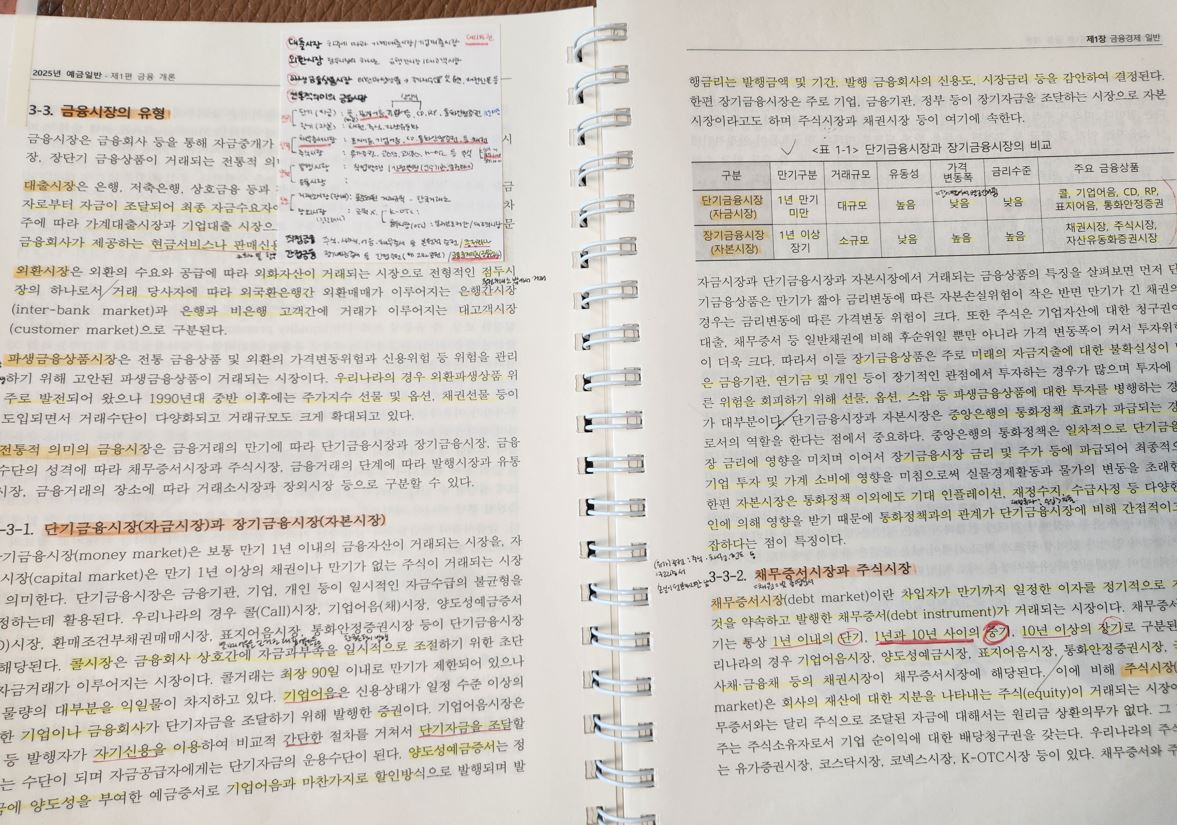 2025년 예금일반 - 제1편 금융 개론
3-3. 금융시장의 유형
금융시장은 금융회사 등을 통해 자금중개가
장, 장단기 금융상품이 거래되는 전통적 의미
대출시장은 은행, 저축은행, 상호금융 등과
자로부터 자금이 조달되어 최종 자금수요자
주에 따라 가계대출시장과 기업대출 시장으
금융회사가 제공하는 현금서비스나 판매신용
대출시장
외환시장
파생금융상품시장
전통적의미의 금융시장
직접금융
간접금융
외환시장은 외환의 수요와 공급에 따라 외화자산이 거래되는 시장으로 전형적인 점두시
장의 하나로서 거래 당사자에 따라 외국환은행간 외환매매가 이루어지는 은행간시장
(inter-bank market)과 은행과 비은행 고객간에 거래가 이루어지는 대고객시장
(customer market)으로 구분된다.
파생금융상품시장은 전통 금융상품 및 외환의 가격변동위험과 신용위험 등 위험을 관리
하기 위해 고안된 파생금융상품이 거래되는 시장이다. 우리나라의 경우 외환파생상품 위
주로 발전되어 왔으나 1990년대 중반 이후에는 주가지수 선물 및 옵션, 채권선물 등이
도입되면서 거래수단이 다양화되고 거래규모도 크게 확대되고 있다.
전통적 의미의 금융시장은 금융거래의 만기에 따라 단기금융시장과 장기금융시장, 금융
수단의 성격에 따라 채무증서시장과 주식시장, 금융거래의 단계에 따라 발행시장과 유통
시장, 금융거래의 장소에 따라 거래소시장과 장외시장 등으로 구분할 수 있다.
-3-1. 단기금융시장(자금시장)과 장기금융시장(자본시장)
기금융시장(money market)은 보통 만기 1년 이내의 금융자산이 거래되는 시장을, 자
시장(capital market)은 만기 1년 이상의 채권이나 만기가 없는 주식이 거래되는 시장
의미한다. 단기금융시장은 금융기관, 기업, 개인 등이 일시적인 자금수급의 불균형을
정하는데 활용된다. 우리나라의 경우 콜(Call)시장, 기업어음(채)시장, 양도성예금증서
)시장, 환매조건부채권매매시장, 표지어음시장, 통화안정증권시장 등이 단기금융시장
해당된다. 콜시장은 금융회사 상호간에 자금과부족을 일시적으로 조절하기 위한 초단
자금거래가 이루어지는 시장이다. 콜거래는 최장 90일 이내로 만기가 제한되어 있으나
물량의 대부분을 익일물이 차지하고 있다. 기업어음은 신용상태가 일정 수준 이상의
한 기업이나 금융회사가 단기자금을 조달하기 위해 발행한 증권이다. 기업어음시장은
등 발행자가 자기신용을 이용하여 비교적 간단한 절차를 거쳐서 단기자금을 조달할
는 수단이 되며 자금공급자에게는 단기자금의 운용수단이 된다. 양도성예금증서는 정
금에 양도성을 부여한 예금증서로 기업어음과 마찬가지로 할인방식으로 발행되며 발
제1장 금융경제 일반
행금리는 발행금액 및 기간, 발행 금융회사의 신용도, 시장금리 등을 감안하여 결정된다.
한편 장기금융시장은 주로 기업, 금융기관, 정부 등이 장기자금을 조달하는 시장으로 자본
시장이라고도 하며 주식시장과 채권시장 등이 여기에 속한다.
<표 1-1> 단기금융시장과 장기금융시장의 비교
구분 만기구분 거래규모 유동성 가격변동폭 금리수준 주요 금융상품
단기금융시장(자금시장) 1년 만기 미만 대규모 높음 낮음 낮음 콜, 기업어음, CD, RP, 표지어음, 통화안정증권
장기금융시장(자본시장) 1년 이상 장기 소규모 낮음 높음 높음 채권시장, 주식시장, 자산유동화증권시장
자금시장과 단기금융시장과 자본시장에서 거래되는 금융상품의 특징을 살펴보면 먼저 단
기금융상품은 만기가 짧아 금리변동에 따른 자본손실위험이 작은 반면 만기가 긴 채권의
경우는 금리변동에 따른 가격변동 위험이 크다. 또한 주식은 기업자산에 대한 청구권이
대출, 채무증서 등 일반채권에 비해 후순위일 뿐만 아니라 가격 변동폭이 커서 투자위험
이 더욱 크다. 따라서 이들 장기금융상품은 주로 미래의 자금지출에 대한 불확실성이
은 금융기관, 연기금 및 개인 등이 장기적인 관점에서 투자하는 경우가 많으며 투자에
른 위험을 회피하기 위해 선물, 옵션, 스왑 등 파생금융상품에 대한 투자를 병행하는 경
가 대부분이다. 단기금융시장과 자본시장은 중앙은행의 통화정책 효과가 파급되는 경
로서의 역할을 한다는 점에서 중요하다. 중앙은행의 통화정책은 일차적으로 단기금융
장 금리에 영향을 미치며 이어서 장기금융시장 금리 및 주가 등에 파급되어 최종적으
기업 투자 및 가계 소비에 영향을 미침으로써 실물경제활동과 물가의 변동을 초래한
한편 자본시장은 통화정책 이외에도 기대 인플레이션, 재정수지, 수급사정 등 다양한
인에 의해 영향을 받기 때문에 통화정책과의 관계가 단기금융시장에 비해 간접적이고
잡하다는 점이 특징이다.
3-3-2. 채무증서시장과 주식시장
채무증서시장(debt market)이란 차입자가 만기까지 일정한 이자를 정기적으로 지
것을 약속하고 발행한 채무증서(debt instrument)가 거래되는 시장이다. 채무증서
기는 통상 1년 이내의 단기, 1년과 10년 사이의 중기, 10년 이상의 장기로 구분된
리나라의 경우 기업어음시장, 양도성예금시장, 표지어음시장, 통화안정증권시장,
사채·금융채 등의 채권시장이 채무증서시장에 해당된다. 이에 비해 주식시장(
market)은 회사의 재산에 대한 지분을 나타내는 주식(equity)이 거래되는 시장이
무증서와는 달리 주식으로 조달된 자금에 대해서는 원리금 상환의무가 없다. 그
주는 주식소유자로서 기업 순이익에 대한 배당청구권을 갖는다. 우리나라의 주식
는 유가증권시장, 코스닥시장, 코넥스시장, K-OTC시장 등이 있다. 채무증서와 주